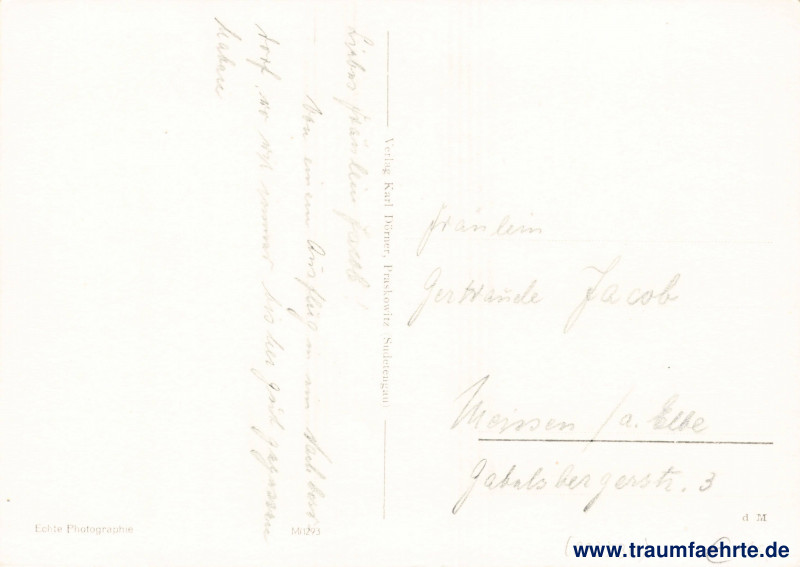 Liebes Fräulein Jacob!
Von einem Ausflug in ein
dorf, wo wir immer bis hier gut gegessen
haben
Verlag Karl Dörner, Praskowitz Sudetengau
Fräulein
Gertraude Jacob
Meissen / a. Elbe
Gabelsbergerstr. 3
Echte Photographie
M0293
d M
www.traumfaehrte.de